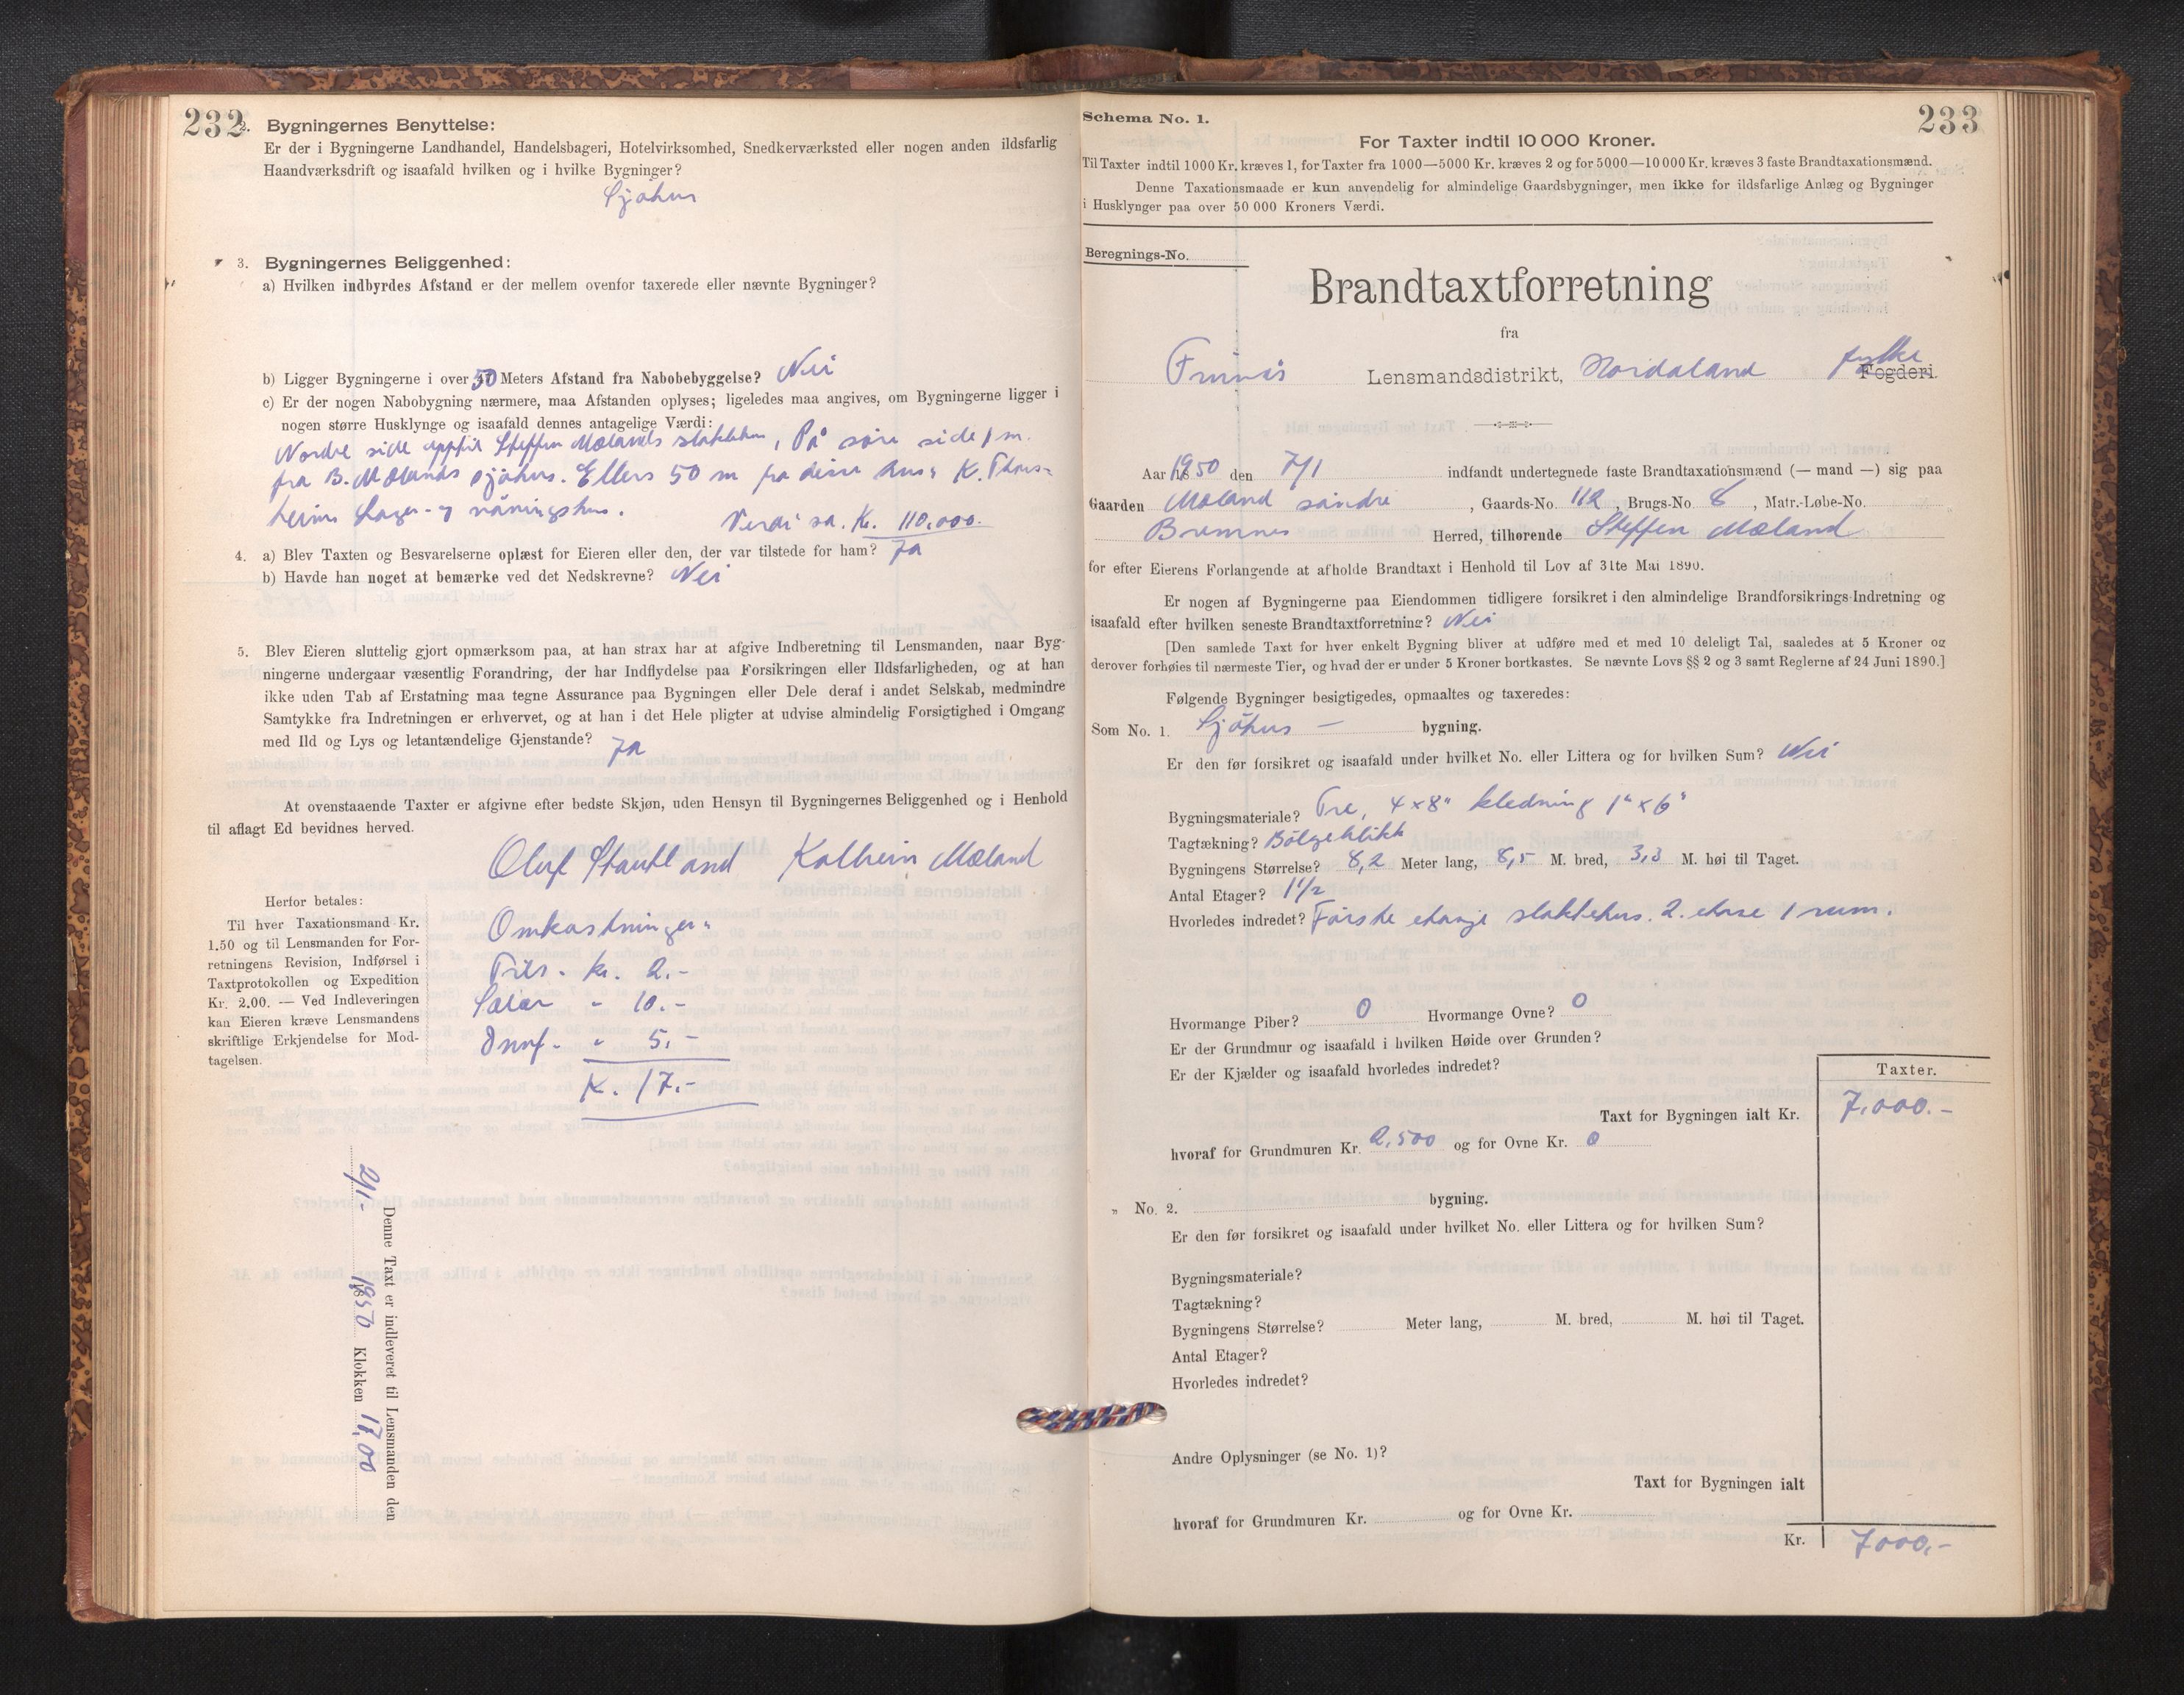 232
2. Bygningernes Benyttelse:
Er der i Bygningerne Landhandel, Handelsbageri, Hotelvirksomhed, Snedkerværksted eller nogen anden ildsfarlig
Haandværksdrift og isaafald hvilken og i hvilke Bygninger?
Sjøhus
3. Bygningernes Beliggenhed:
a) Hvilken indbyrdes Afstand er der mellem ovenfor taxerede eller nævnte Bygninger?
b) Ligger Bygningerne i over 50 Meters Afstand fra Nabobebyggelse? Nei
c) Er der nogen Nabobygning nærmere, maa Afstanden oplyses; ligeledes maa angives, om Bygningerne ligger i
nogen større Husklynge og isaafald dennes antagelige Værdi:
Nordre side opptil Steffen Mælands slaktehus, På søre side 1 m.
fra B. Mælands sjøhus. Ellers 50 m fra disse hus: K. Thors-
heims Lager- og våningshus.
Verdi sa. Kr. 110.000.
4. a) Blev Taxten og Besvarelserne oplæst for Eieren eller den, der var tilstede for ham? Ja
b) Havde han noget at bemærke ved det Nedskrevne? Nei
5. Blev Eieren sluttelig gjort opmærksom paa, at han strax har at afgive Indberetning til Lensmanden, naar Byg-
ningerne undergaar væsentlig Forandring, der har Indflydelse paa Forsikringen eller Ildsfarligheden, og at han
ikke uden Tab af Erstatning maa tegne Assurance paa Bygningen eller Dele deraf i andet Selskab, medmindre
Samtykke fra Indretningen er erhvervet, og at han i det Hele pligter at udvise almindelig Forsigtighed i Omgang
med Ild og Lys og letantændelige Gjenstande? Ja
At ovenstaaende Taxter er afgivne efter bedste Skjøn, uden Hensyn til Bygningernes Beliggenhed og i Henhold
til aflagt Ed bevidnes herved.
Oluf Stautland Kolbein Mæland
Herfor betales:
Til hver Taxationsmand Kr.
1.50 og til Lensmanden for For-
retningens Revision, Indførsel i
Taxtprotokollen og Expedition
Kr. 2.00. — Ved Indleveringen
kan Eieren kræve Lensmandens
skriftlige Erkjendelse for Mod-
tagelsen.
Omkostninger:
kr. 2.-
Salær " 10.-
" 5.-
K. 17.-
Denne Taxt er indleveret til Lensmanden den
2/1- 1950 Klokken 17,00
233
Schema No. 1.
For Taxter indtil 10 000 Kroner.
Til Taxter indtil 1000 Kr. kræves 1, for Taxter fra 1000—5000 Kr. kræves 2 og for 5000—10 000 Kr. kræves 3 faste Brandtaxationsmænd.
Denne Taxationsmaade er kun anvendelig for almindelige Gaardsbygninger, men ikke for ildsfarlige Anlæg og Bygninger
i Husklynger paa over 50 000 Kroners Værdi.
Beregnings-No.
Brandtaxtforretning
fra
Finnås Lensmandsdistrikt, Hordaland fylke Fogderi.
Aar 1950 den 7/1 indfandt undertegnede faste Brandtaxationsmænd (— mand —) sig paa
Gaarden Mæland søndre, Gaards-No. 112, Brugs-No. 8, Matr.-Løbe-No.
Bremnes Herred, tilhørende Steffen Mæland
for efter Eierens Forlangende at afholde Brandtaxt i Henhold til Lov af 31te Mai 1890.
Er nogen af Bygningerne paa Eiendommen tidligere forsikret i den almindelige Brandforsikrings-Indretning og
isaafald efter hvilken seneste Brandtaxtforretning? Nei
[Den samlede Taxt for hver enkelt Bygning bliver at udføre med et med 10 deleligt Tal, saaledes at 5 Kroner og
derover forhøies til nærmeste Tier, og hvad der er under 5 Kroner bortkastes. Se nævnte Lovs §§ 2 og 3 samt Reglerne af 24 Juni 1890.]
Følgende Bygninger besigtigedes, opmaaltes og taxeredes:
Som No. 1. Sjøhus — bygning.
Er den før forsikret og isaafald under hvilket No. eller Littera og for hvilken Sum? Nei
Bygningsmateriale? Tre, 4 x 8" kledning 1" x 6"
Tagtækning? Bølgeblikk
Bygningens Størrelse? 8,2 Meter lang, 8,5 M. bred, 3,3 M. høi til Taget.
Antal Etager? 1 1/2
Hvorledes indredet? Første etasje slaktehus. 2. etase 1 rum.
Hvormange Piber? 0 Hvormange Ovne? 0
Er der Grundmur og isaafald i hvilken Høide over Grunden?
Er der Kjælder og isaafald hvorledes indredet?
Taxter.
Taxt for Bygningen ialt Kr. 7.000.-
hvoraf for Grundmuren Kr. 2.500 og for Ovne Kr. 0
" No. 2. bygning.
Er den før forsikret og isaafald under hvilket No. eller Littera og for hvilken Sum?
Bygningsmateriale?
Tagtækning?
Bygningens Størrelse? Meter lang, M. bred, M. høi til Taget.
Antal Etager?
Hvorledes indredet?
Andre Oplysninger (se No. 1)?
Taxt for Bygningen ialt
hvoraf for Grundmuren Kr. og for Ovne Kr.
Kr. 7000,-